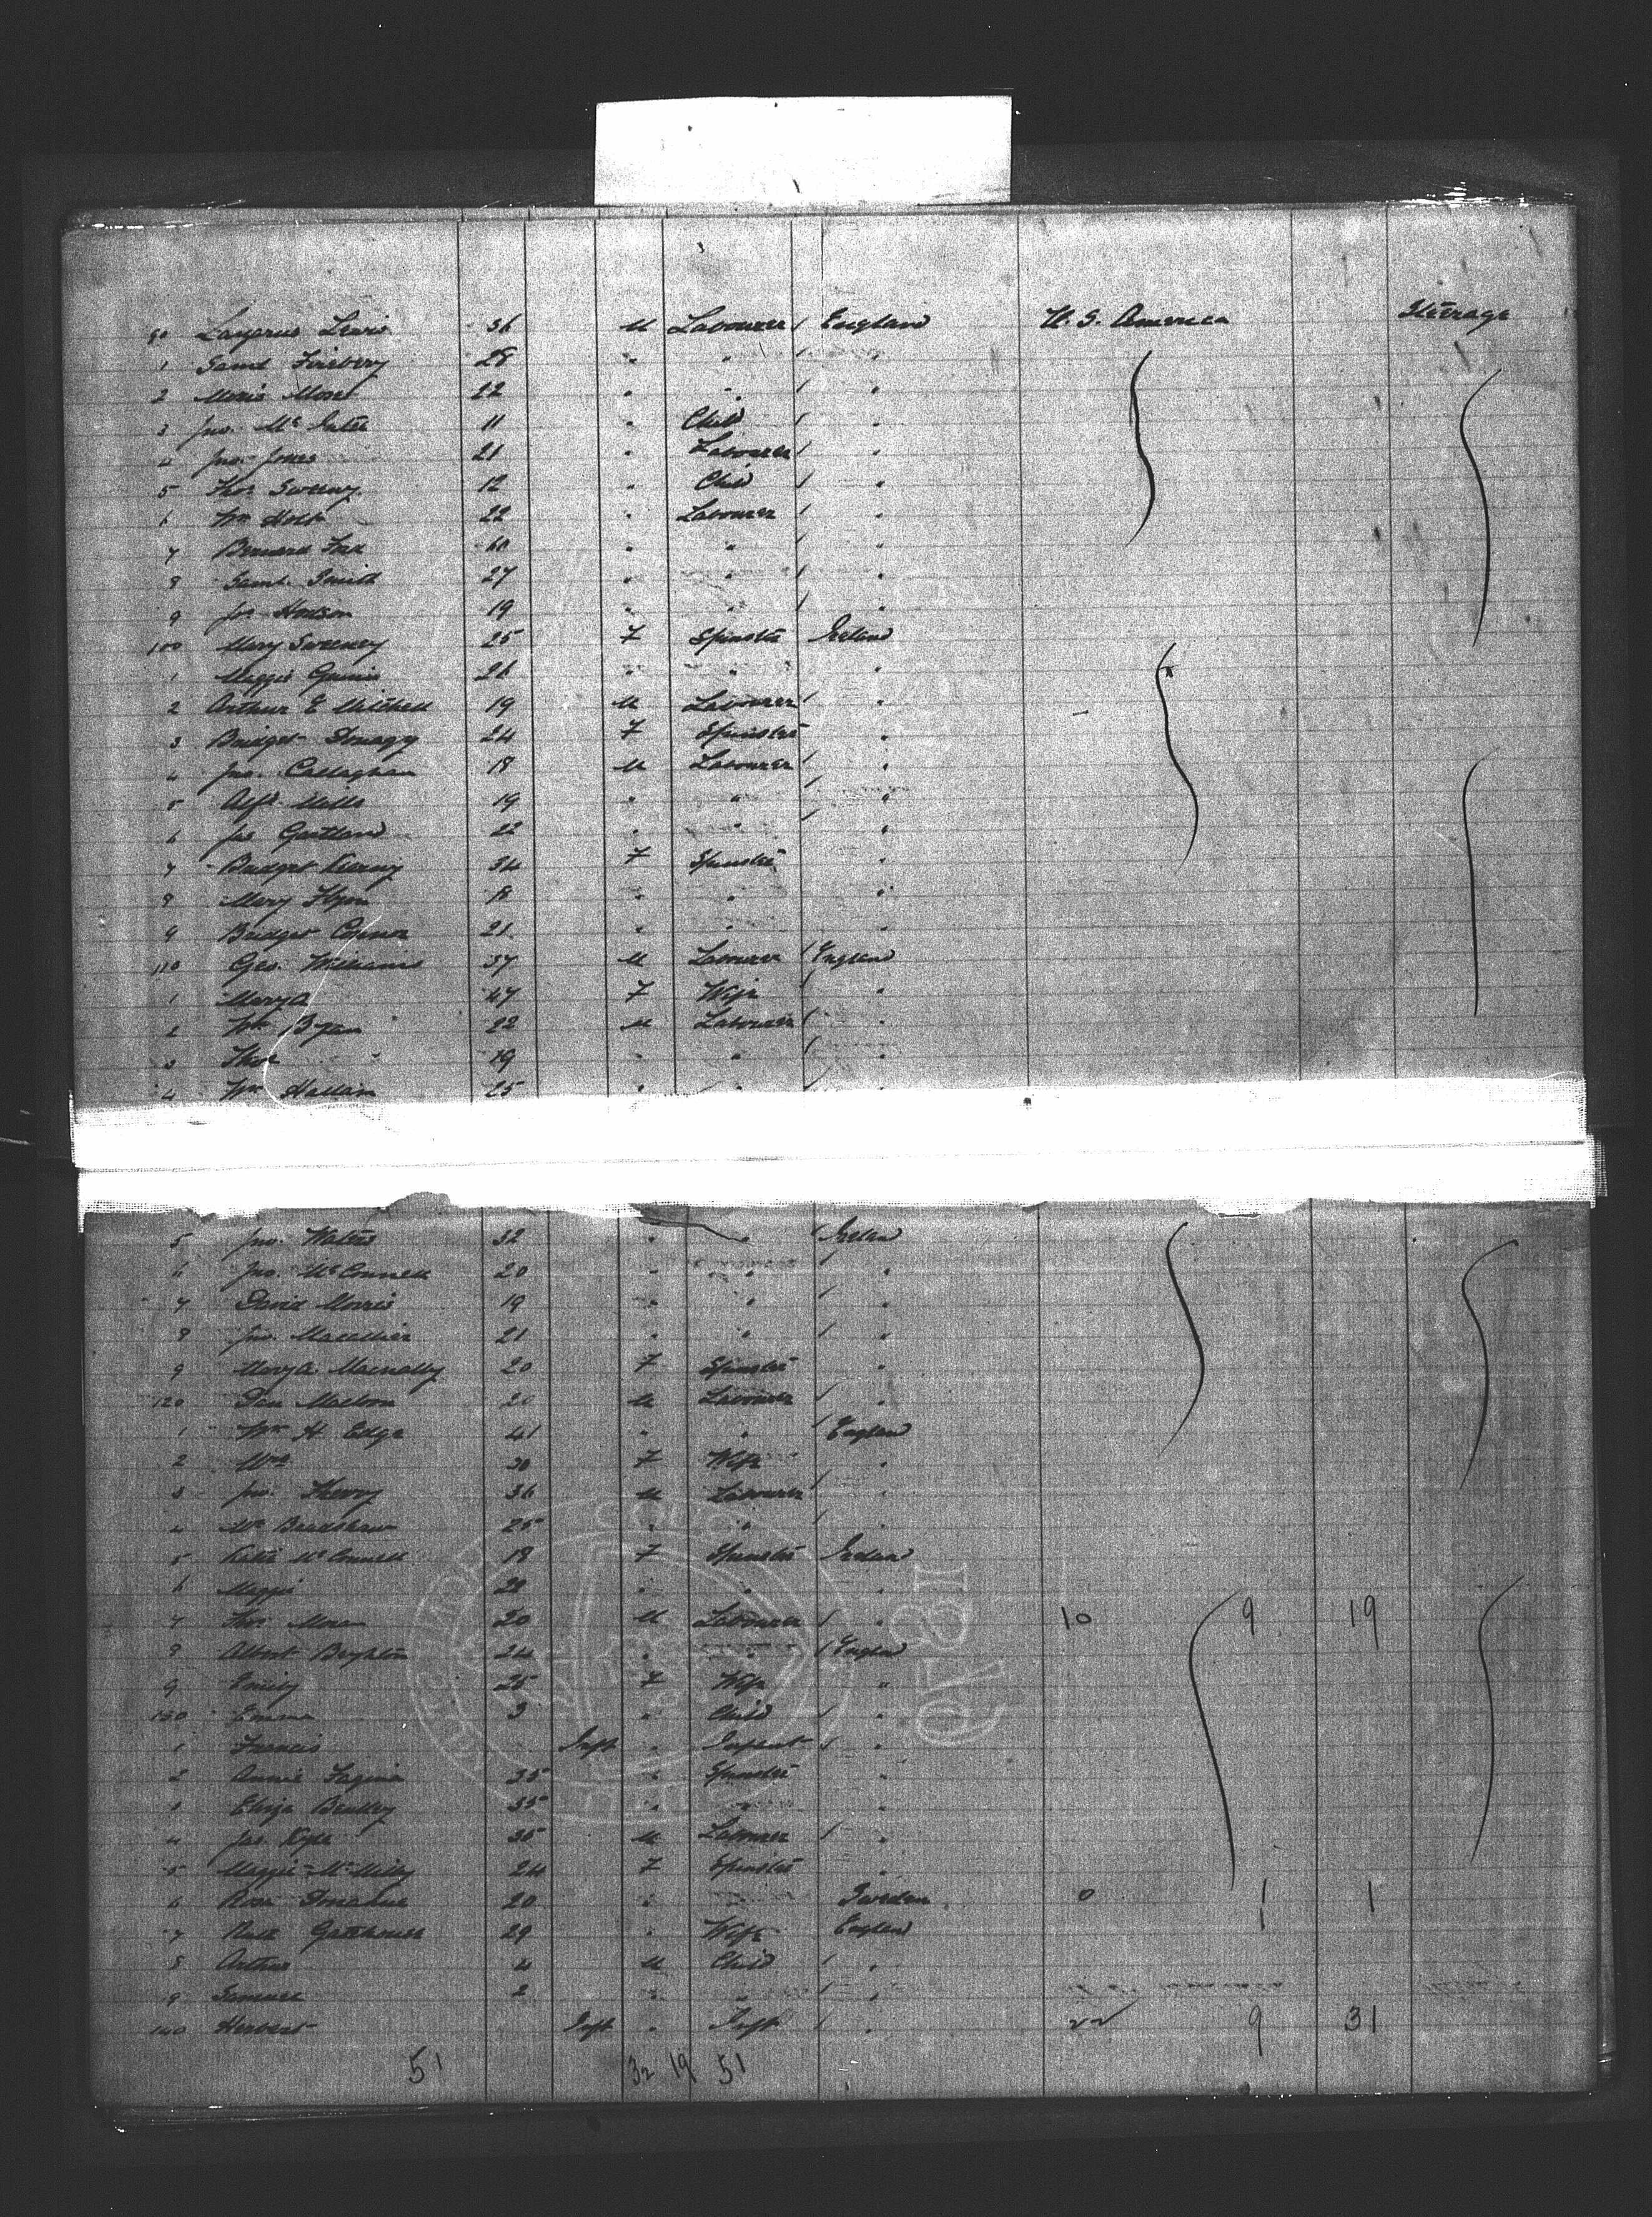 90 Lazarus Lewis 36 M Labourer / England U. S. America Steerage
1 Saml Fineberg 28 " " / "
2 Morris Moses 22 " " / "
3 Jno. Mc 11 " Child / "
4 Jno. Jones 21 " Labourer / "
5 Thos Sweeny 12 " Child / "
6 Wm Holt 22 " Labourer / "
7 Bernard Fox 60 " " / "
8 Saml. Smith 27 " " / "
9 19 " " / "
100 Mary Sweeney 25 F Spinster Ireland
1 Maggie 26 " " "
2 Arthur E Mitchell 19 M Labourer / "
3 Bridget 24 F Spinster "
4 Jno. Callaghan 18 M Labourer / "
5 Alfd. Mills 19 " " / "
6 Jas Gartland 22 " " / "
7 Bridget Kierny 34 F Spinster "
8 Mary 18 " " "
9 Bridget Connor 21 " " "
110 Geo. Williams 37 M Labourer / England
1 Mary A 47 F Wife / "
2 Wm Byan 22 M Labourer / "
3 Thos 19 " " / "
4 Wm Hallam 25 " " / "
5 Jno. Waters 32 " " / Ireland
6 Jno. McConnell 20 " " / "
7 David Morris 19 " " / "
8 Jno. 21 " " / "
9 Mary A. Macnally 20 F Spinster "
120 Dan 20 M Labourer / "
1 Wm H Edge 41 " " / England
2 Mrs 30 F Wife "
3 Jno. 36 M Labourer / "
4 Wm Bradshaw 25 " " / "
5 Katie McConnell 18 F Spinster Ireland
6 Maggie 22 " " "
7 Thos. Moran 20 M Labourer / " 10 9 19
8 Albert 24 " " / England
9 Emily 25 F Wife "
130 Emma 3 " Child / "
1 Francis Inft " Infant / "
2 Annie 35 " Spinster "
3 Eliza Bradley 35 " " "
4 Jas. Kyle 35 M Labourer / "
5 Maggie 24 F Spinster "
6 Rose Donahue 20 " Sweden 0 1 1
7 Ruth Gatehouse 29 " Wife England 1
8 Arthur 4 M Child / "
9 Samuel 2 " " / "
140 Herbert Inft " Inft / " 22 9 31
51 32 19 51